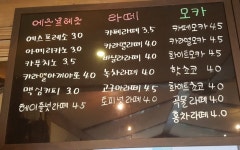 에스프레소 라떼 모카
에스프레소 3.0
아메리카노 3.0
카푸치노 3.5
카라멜마끼아또 4.0
믹심커피 2.0
헤이즐넛라떼 4.0
카페라떼 3.5
카라멜라떼 4.0
바닐라라떼 4.0
녹차라떼 4.0
고구마라떼 4.5
토피넛라떼 4.0
카페모카 4.0
카라멜모카 4.5
화이트모카 4.5
핫초코 4.0
화이트초코 4.0
곡물라떼 4.0
홍차라떼 4.0